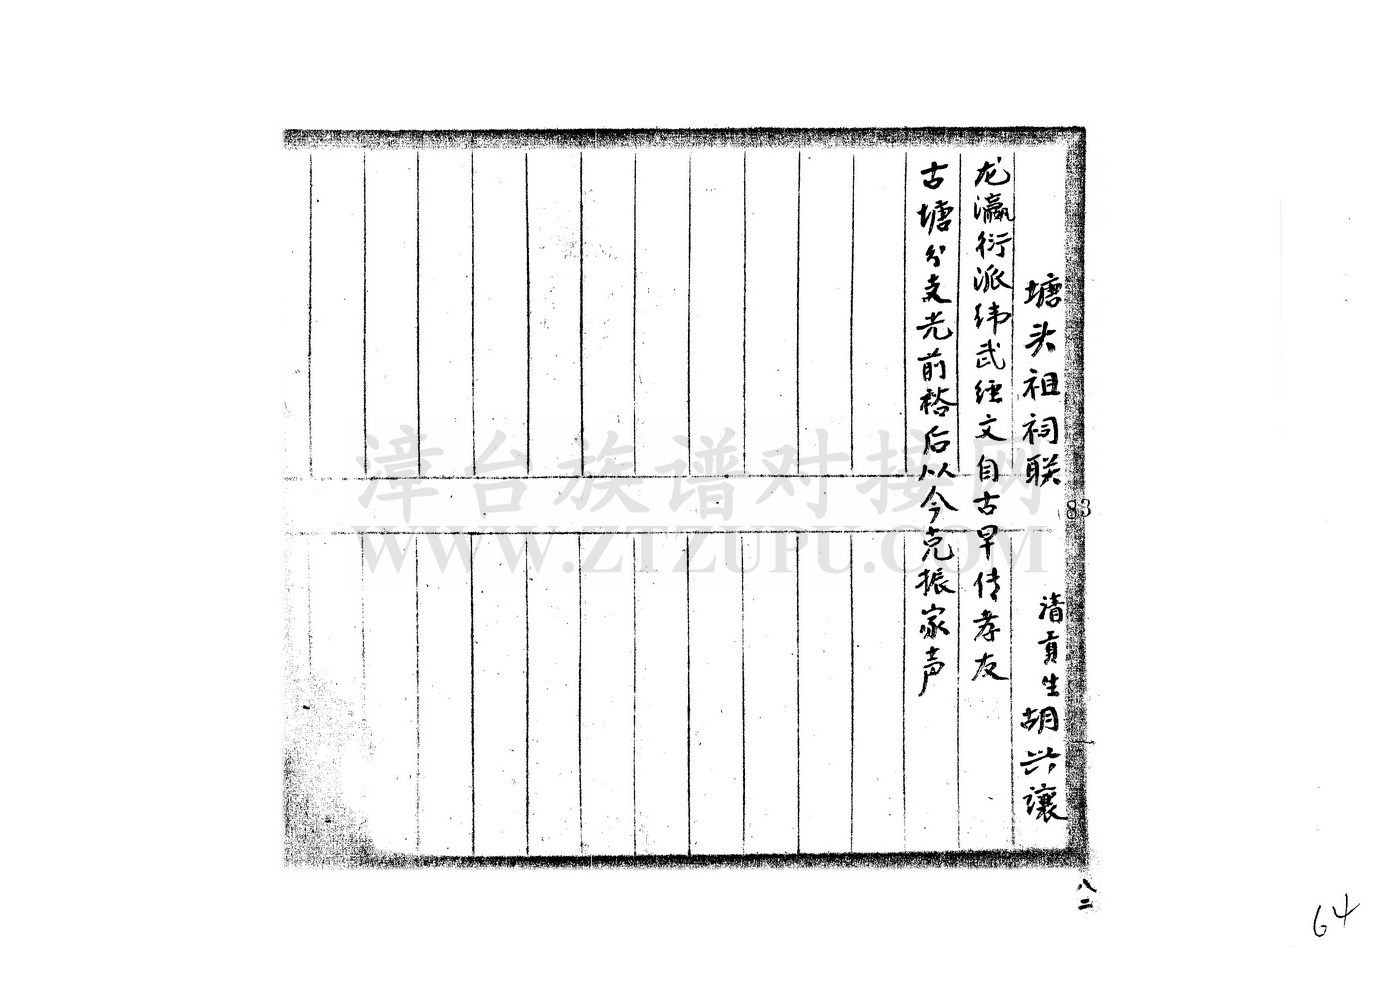 塘头祖祠联 清貢生胡兴讓
龙瀛衍派纬武经文自古早传孝友
古塘分支光前裕后以今克振家声
83
八二
64
漳台族谱对接网
WWW.ZTZUPU.COM